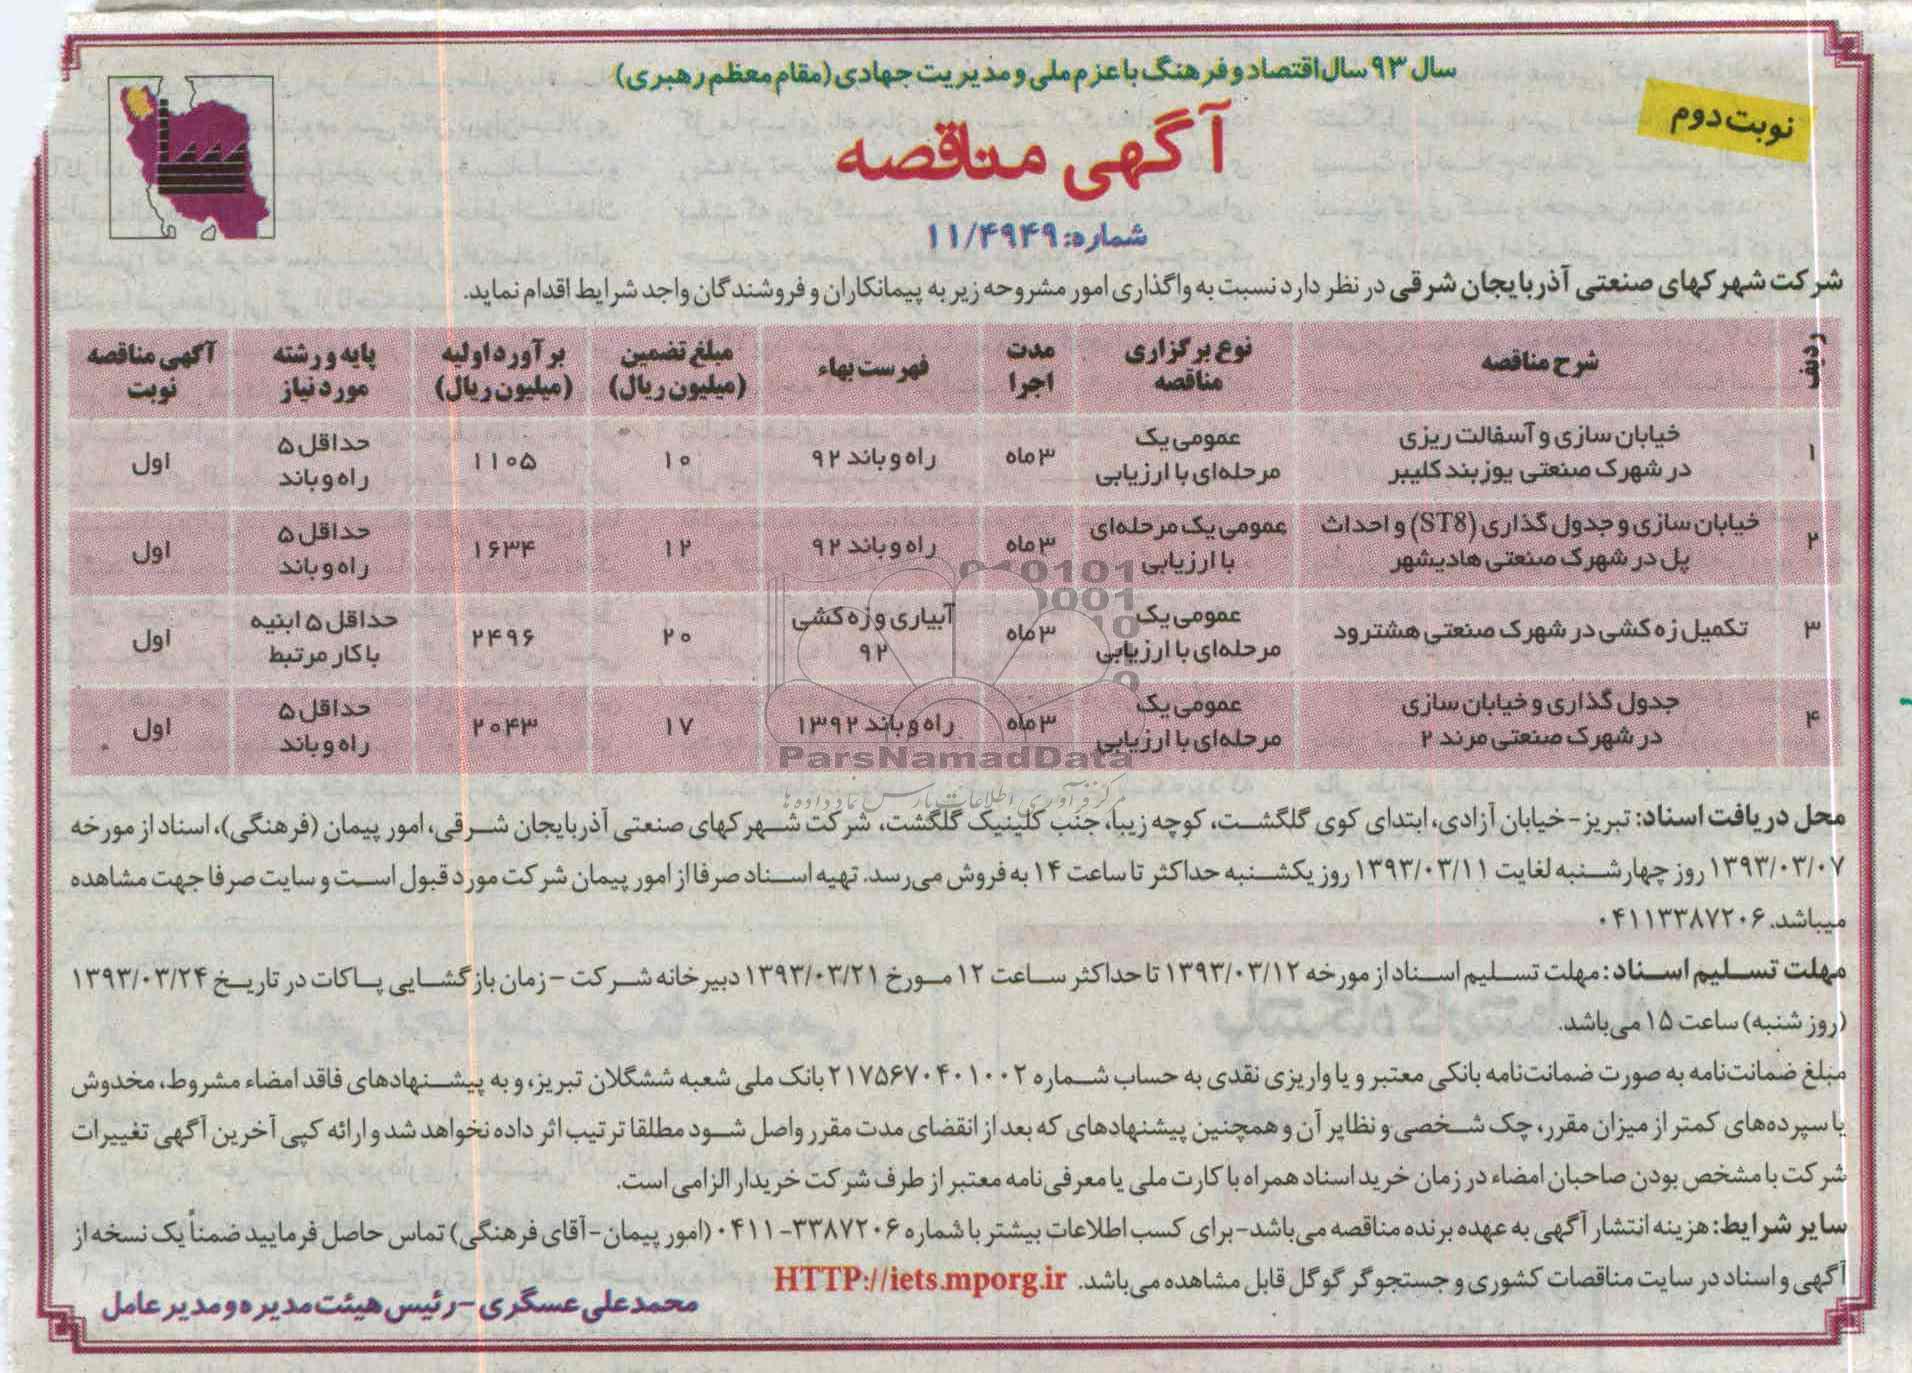 سال ۹۳ سال اقتصاد و فرهنگ با عزم ملی و مدیریت جهادی (مقام معظم رهبری)
نوبت دوم
آگهی مناقصه
شماره: ۱۱/۴۹۴۹
شرکت شهرکهای صنعتی آذربایجان شرقی در نظر دارد نسبت به واگذاری امور مشروحه زیر به پیمانکاران و فروشندگان واجد شرایط اقدام نماید.
ردیف شرح مناقصه نوع برگزاری مناقصه مدت اجرا فهرست بهاء مبلغ تضمین (میلیون ریال) برآورد اولیه (میلیون ریال) پایه و رشته مورد نیاز آگهی مناقصه نوبت
۱ خیابان سازی و آسفالت ریزی در شهرک صنعتی یوزبند کلیبر عمومی یک مرحله‌ای با ارزیابی ۳ ماه راه و باند ۹۲ ۱۰ ۱۱۰۵ حداقل ۵ راه و باند اول
۲ خیابان سازی و جدول گذاری (ST8) و احداث پل در شهرک صنعتی هادیشهر عمومی یک مرحله‌ای با ارزیابی ۳ ماه راه و باند ۹۲ ۱۲ ۱۶۳۴ حداقل ۵ راه و باند اول
۳ تکمیل زه کشی در شهرک صنعتی هشترود عمومی یک مرحله‌ای با ارزیابی ۳ ماه آبیاری و زه کشی ۹۲ ۲۰ ۲۴۹۶ حداقل ۵ ابنیه با کار مرتبط اول
۴ جدول گذاری و خیابان سازی در شهرک صنعتی مرند ۲ عمومی یک مرحله‌ای با ارزیابی ۳ ماه راه و باند ۱۳۹۲ ۱۷ ۲۰۴۳ حداقل ۵ راه و باند اول
ParsNamadData
مرکز فرآوری اطلاعات پارس نماد داده ها
محل دریافت اسناد: تبریز-خیابان آزادی، ابتدای کوی گلگشت، کوچه زیبا، جنب کلینیک گلگشت، شرکت شهرکهای صنعتی آذربایجان شرقی، امور پیمان (فرهنگی)، اسناد از مورخه
۱۳۹۳/۰۳/۰۷ روز چهارشنبه لغایت ۱۳۹۳/۰۳/۱۱ روز یکشنبه حداکثر تا ساعت ۱۴ به فروش می‌رسد. تهیه اسناد صرفا از امور پیمان شرکت مورد قبول است و سایت صرفا جهت مشاهده
میباشد. ۰۴۱۱۳۳۸۷۲۰۶
مهلت تسلیم اسناد: مهلت تسلیم اسناد از مورخه ۱۳۹۳/۰۳/۱۲ تا حداکثر ساعت ۱۲ مورخ ۱۳۹۳/۰۳/۲۱ دبیرخانه شرکت - زمان بازگشایی پاکات در تاریخ ۱۳۹۳/۰۳/۲۴
(روز شنبه) ساعت ۱۵ می‌باشد.
مبلغ ضمانت‌نامه به صورت ضمانت‌نامه بانکی معتبر و یا واریزی نقدی به حساب شماره ۲۱۷۵۶۷۰۴۰۱۰۰۲ بانک ملی شعبه ششگلان تبریز، و به پیشنهادهای فاقد امضاء مشروط، مخدوش
یا سپرده‌های کمتر از میزان مقرر، چک شخصی و نظایر آن و همچنین پیشنهادهای که بعد از انقضای مدت مقرر واصل شود مطلقا ترتیب اثر داده نخواهد شد و ارائه کپی آخرین آگهی تغییرات
شرکت با مشخص بودن صاحبان امضاء در زمان خرید اسناد همراه با کارت ملی یا معرفی‌نامه معتبر از طرف شرکت خریدار الزامی است.
سایر شرایط: هزینه انتشار آگهی به عهده برنده مناقصه می‌باشد-برای کسب اطلاعات بیشتر با شماره ۳۳۸۷۲۰۶-۰۴۱۱ (امور پیمان-آقای فرهنگی) تماس حاصل فرمایید ضمناً یک نسخه از
آگهی و اسناد در سایت مناقصات کشوری و جستجوگر گوگل قابل مشاهده می‌باشد. HTTP://iets.mporg.ir
محمدعلی عسگری - رئیس هیئت مدیره و مدیر عامل